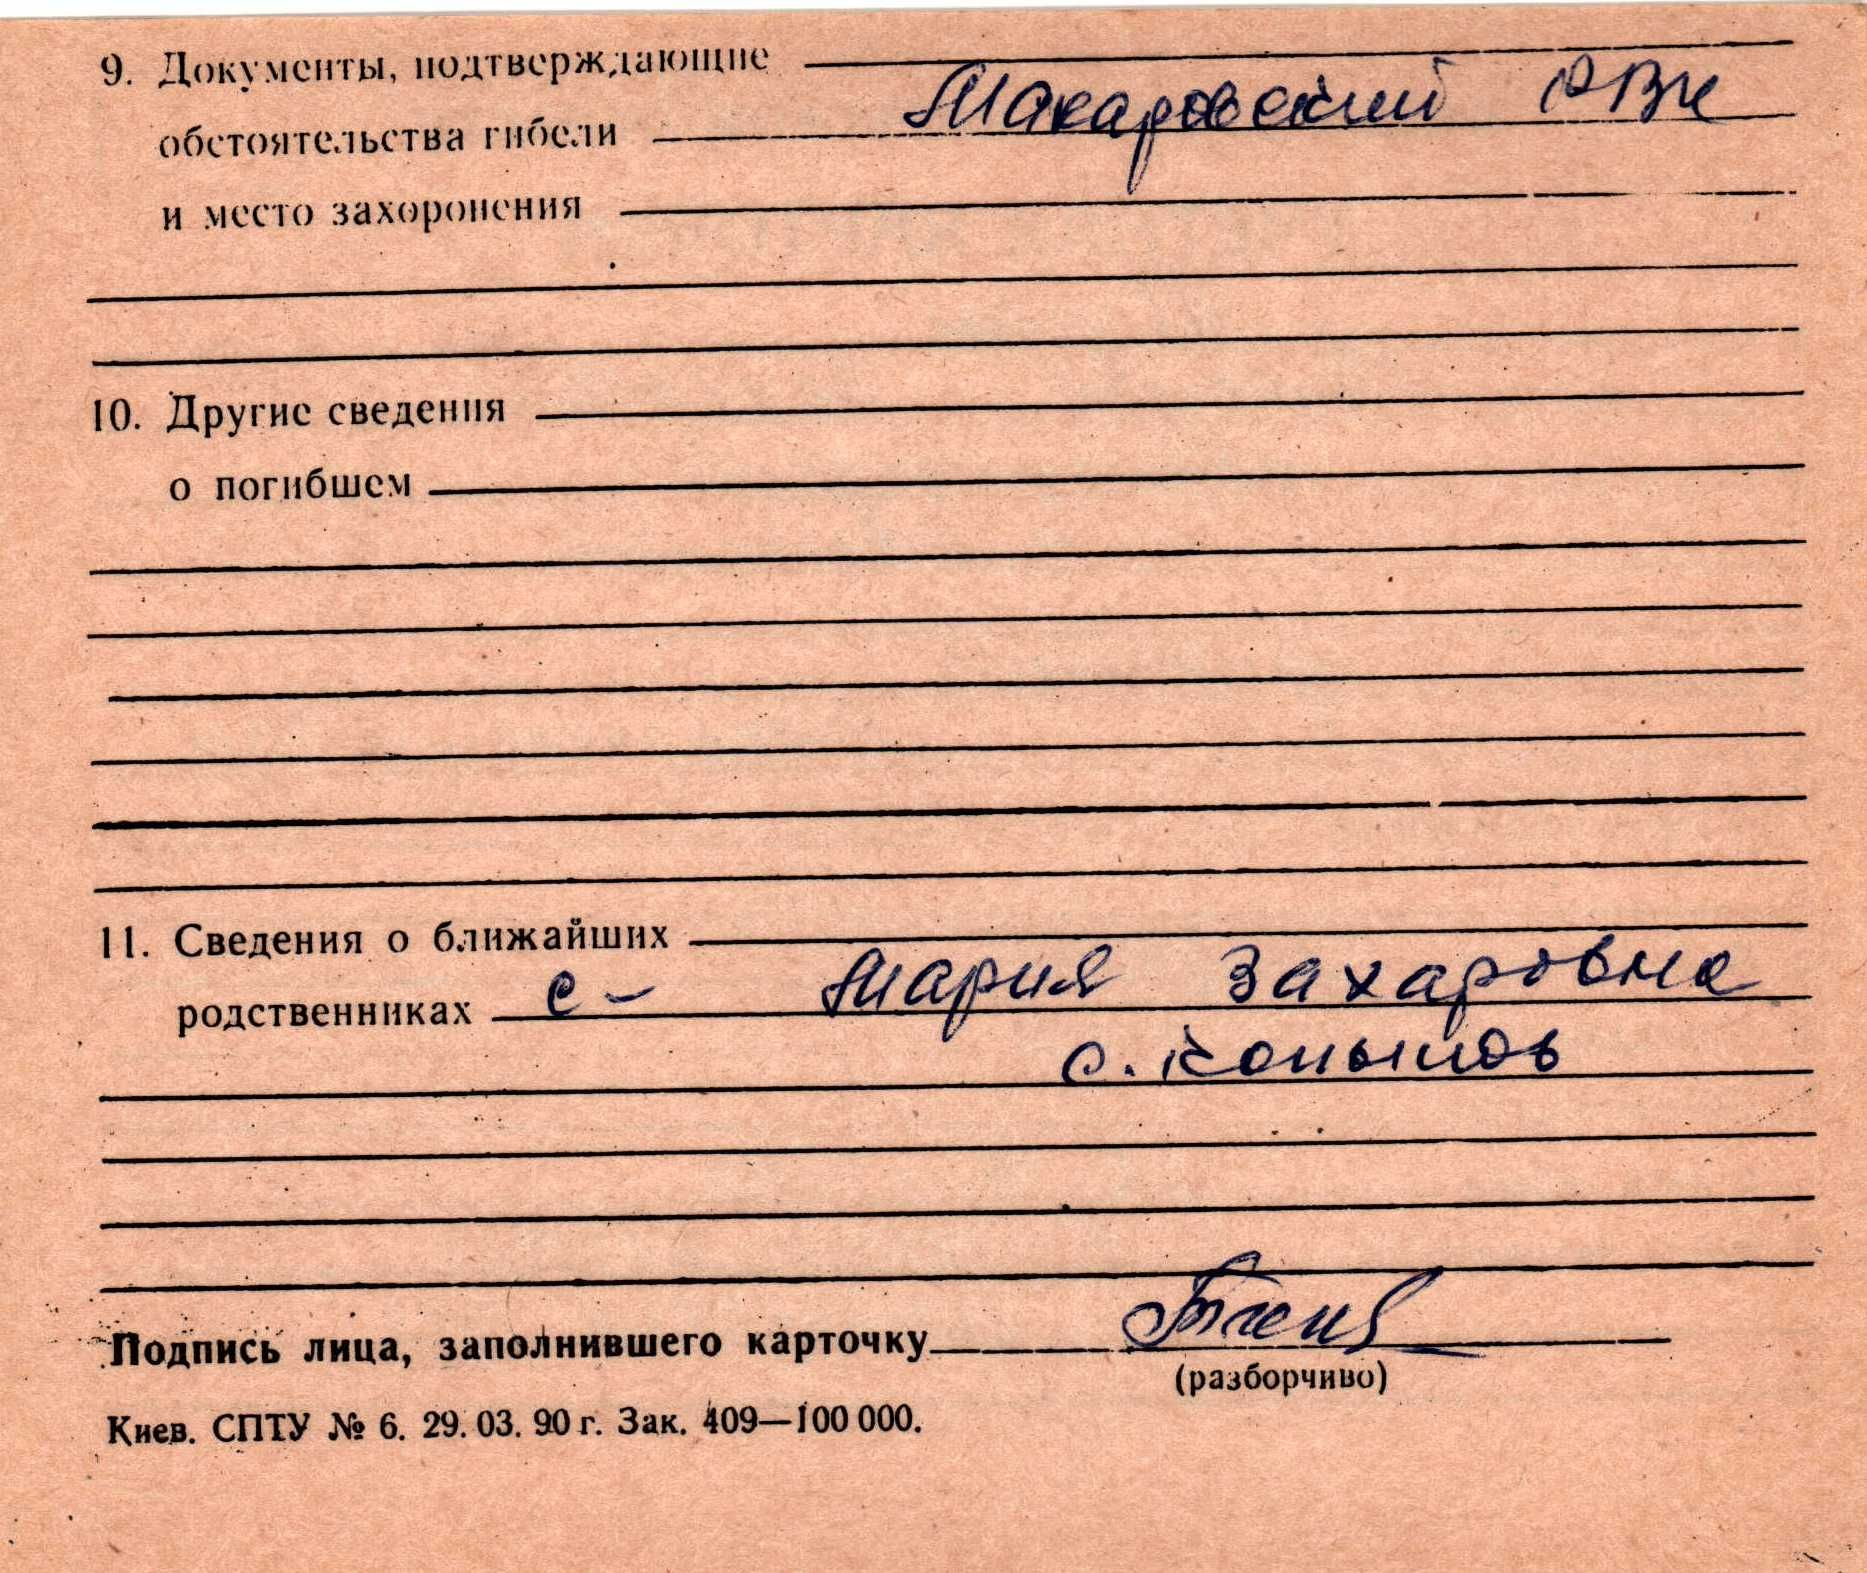 9. Документы, подтверждающие
Макаровский РВК
обстоятельства гибели
и место захоронения
10. Другие сведения
о погибшем
11. Сведения о ближайших
родственниках с - Мария Захаровна
с. Копылов
Подпись лица, заполнившего карточку
(разборчиво)
Киев. СПТУ № 6. 29. 03. 90 г. Зак. 409—100 000.